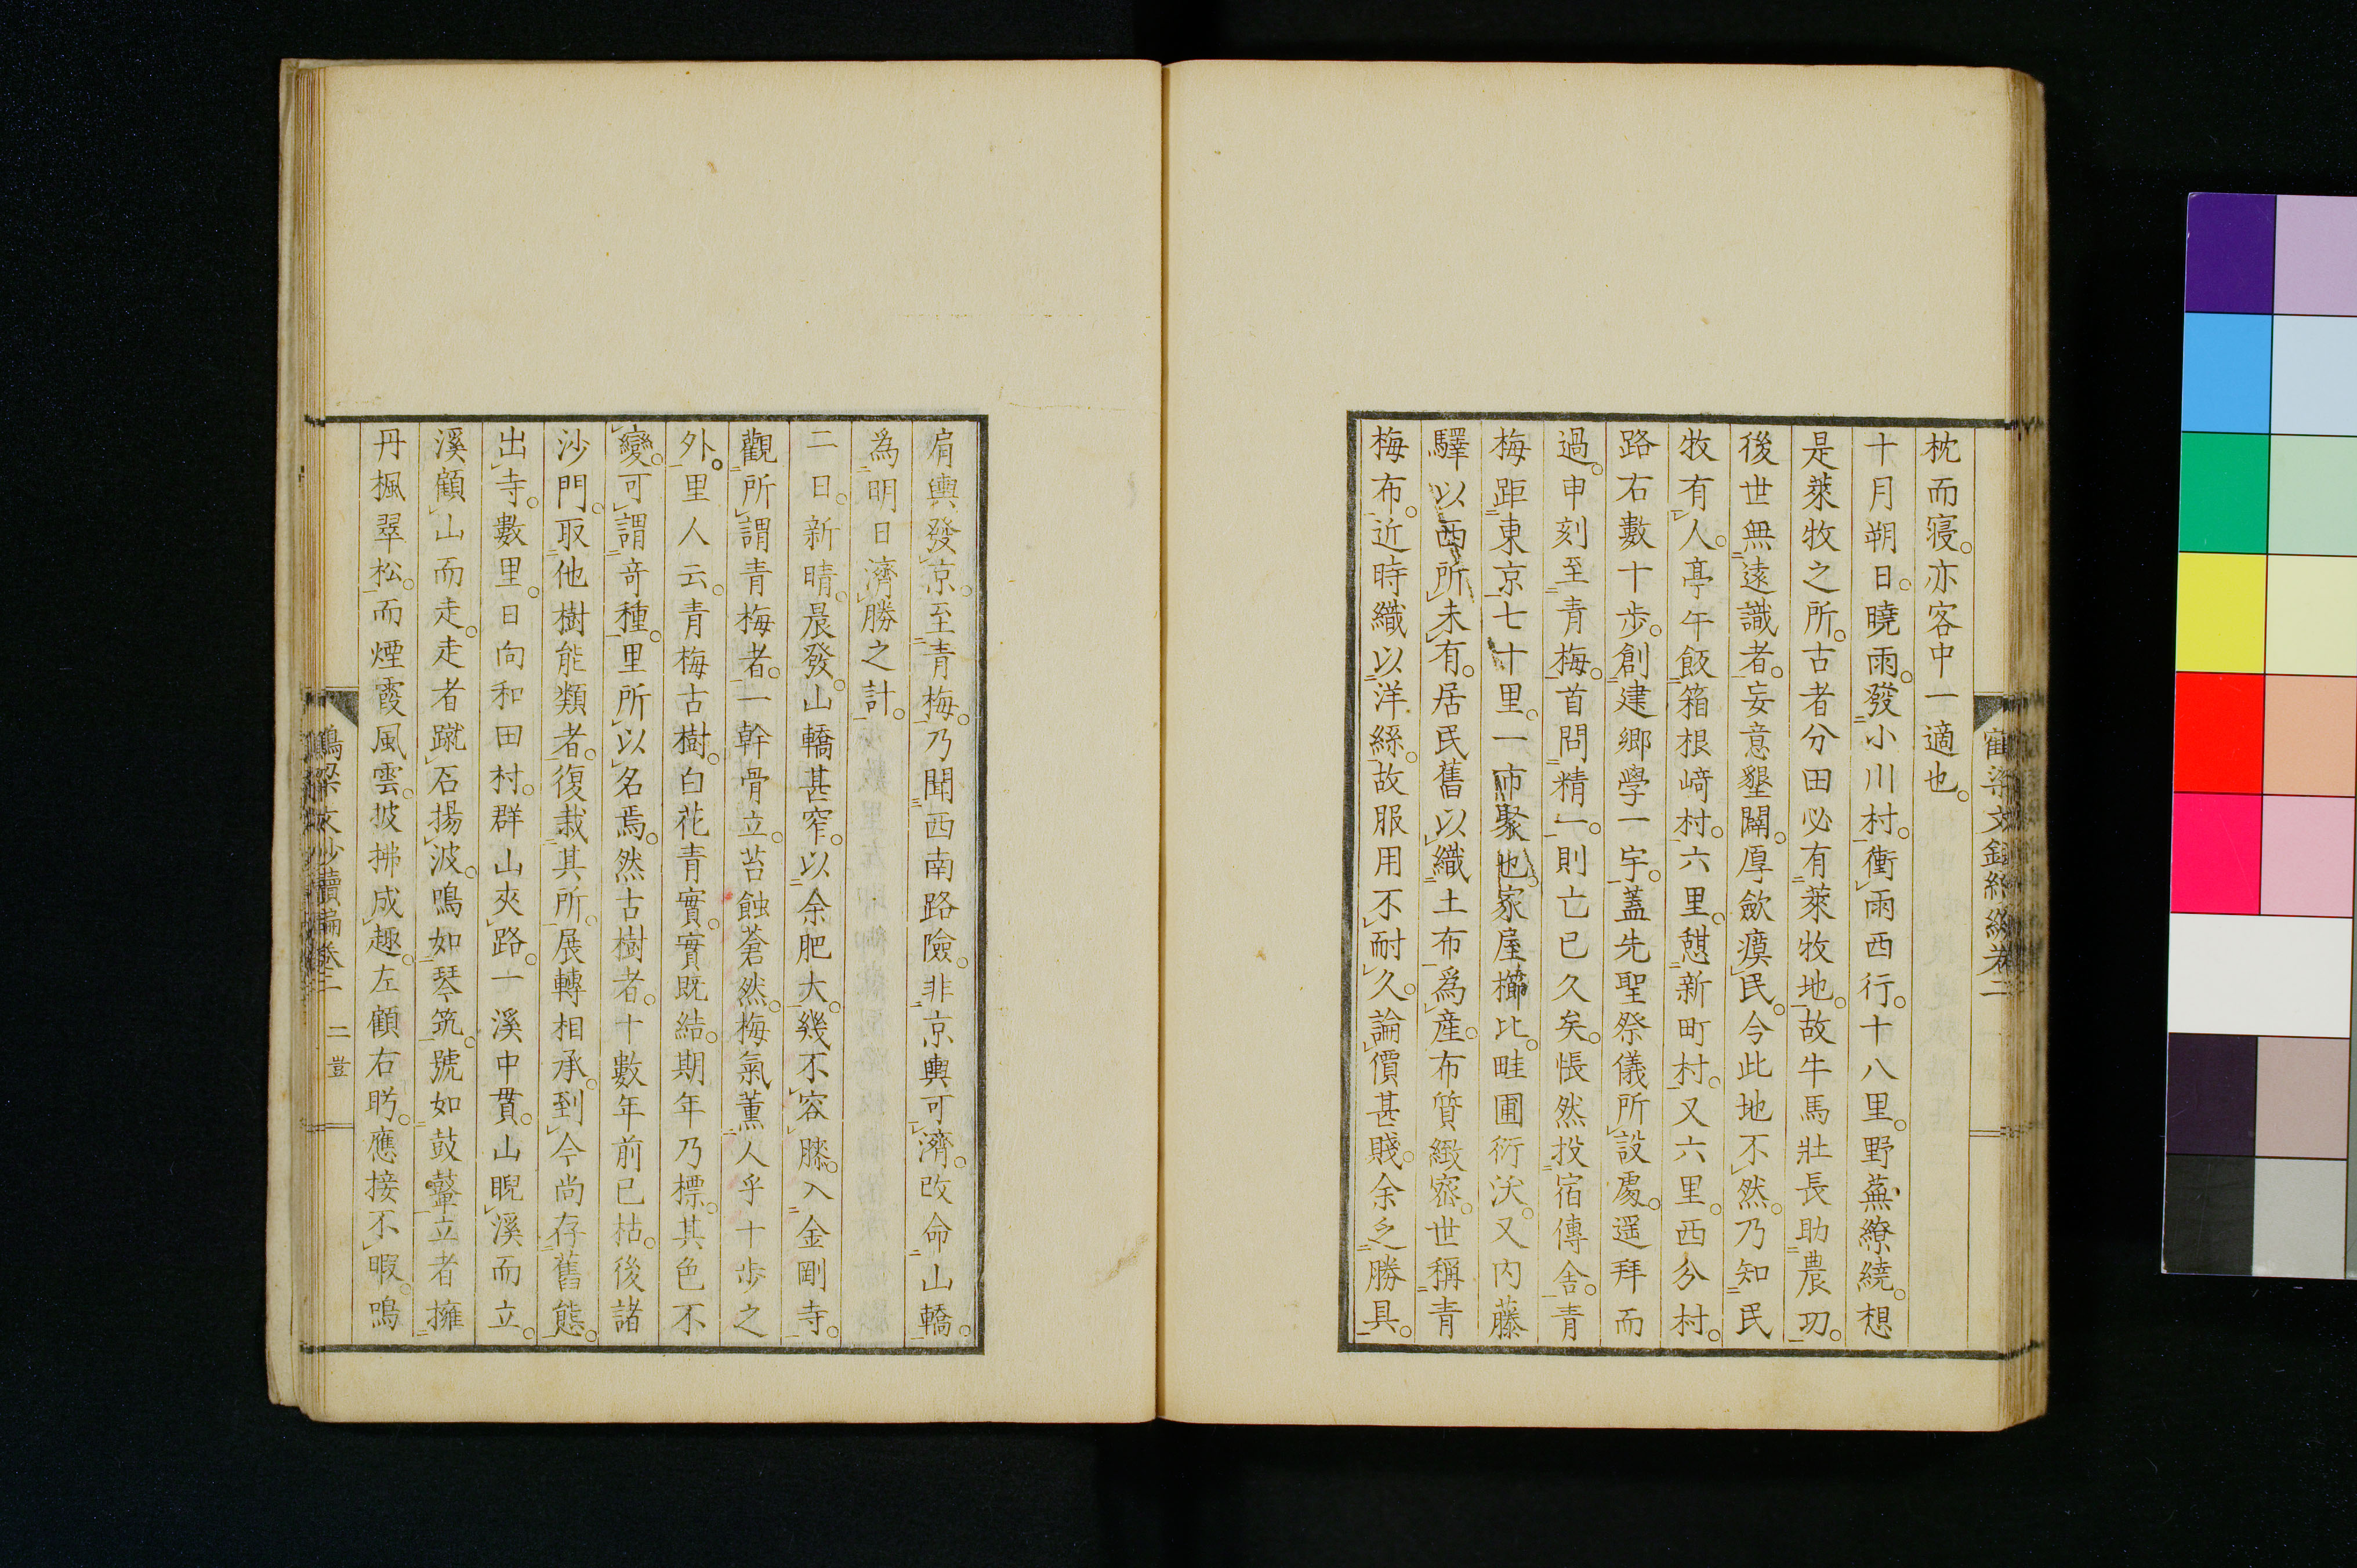 枕而寝。亦客中一適也。
十月朔日。曉雨。發小川村。衝雨西行。十八里。野蕪繚繞。想
是萊牧之所。古者分田必有萊牧地。故牛馬壯長助農功。
後世無遠識者。妄意墾闢。厚歛瘼民。今此地不然。乃知民
牧有人。亭午飯箱根﨑村。六里。憇新町村。又六里。西分村。
路右數十步。創建鄉學一宇。蓋先聖祭儀所設處。遥拜而
過。申刻至青梅。首問精一。則亡已久矣。悵然投宿傳舎。青
梅距東京七十里。一市聚也。家屋櫛比。畦圃衍沃。又内藤
驛以西所未有。居民舊以織土布爲産。布質緻密。世稱青
梅布。近時織以洋絲。故服用不耐久。論價甚賤。余乏勝具。
肩輿發京。至青梅。乃聞西南路險。非京輿可濟。改命山轎。
爲明日濟勝之計。
二日。新晴。晨發。山轎甚窄。以余肥大。幾不容膝。入金剛寺。
觀所謂青梅者。一幹骨立。苔蝕蒼然。梅氣薰人乎十步之
外。里人云。青梅古樹。白花青實。實既結。期年乃標。其色不
變。可謂奇種。里所以名焉。然古樹者。十數年前已枯。後諸
沙門。取他樹能類者。復栽其所。展轉相承。到今尚存舊態。
出寺。數里。日向和田村。群山夾路。一溪中貫。山睨溪而立。
溪顧山而走。走者蹴石揚波。鳴如琴筑。號如鼓鼙。立者擁
丹楓翠松。而煙霞風雲。披拂成趣。左顧右眄。應接不暇。鳴
鶴梁文鈔續編卷二 二 豈